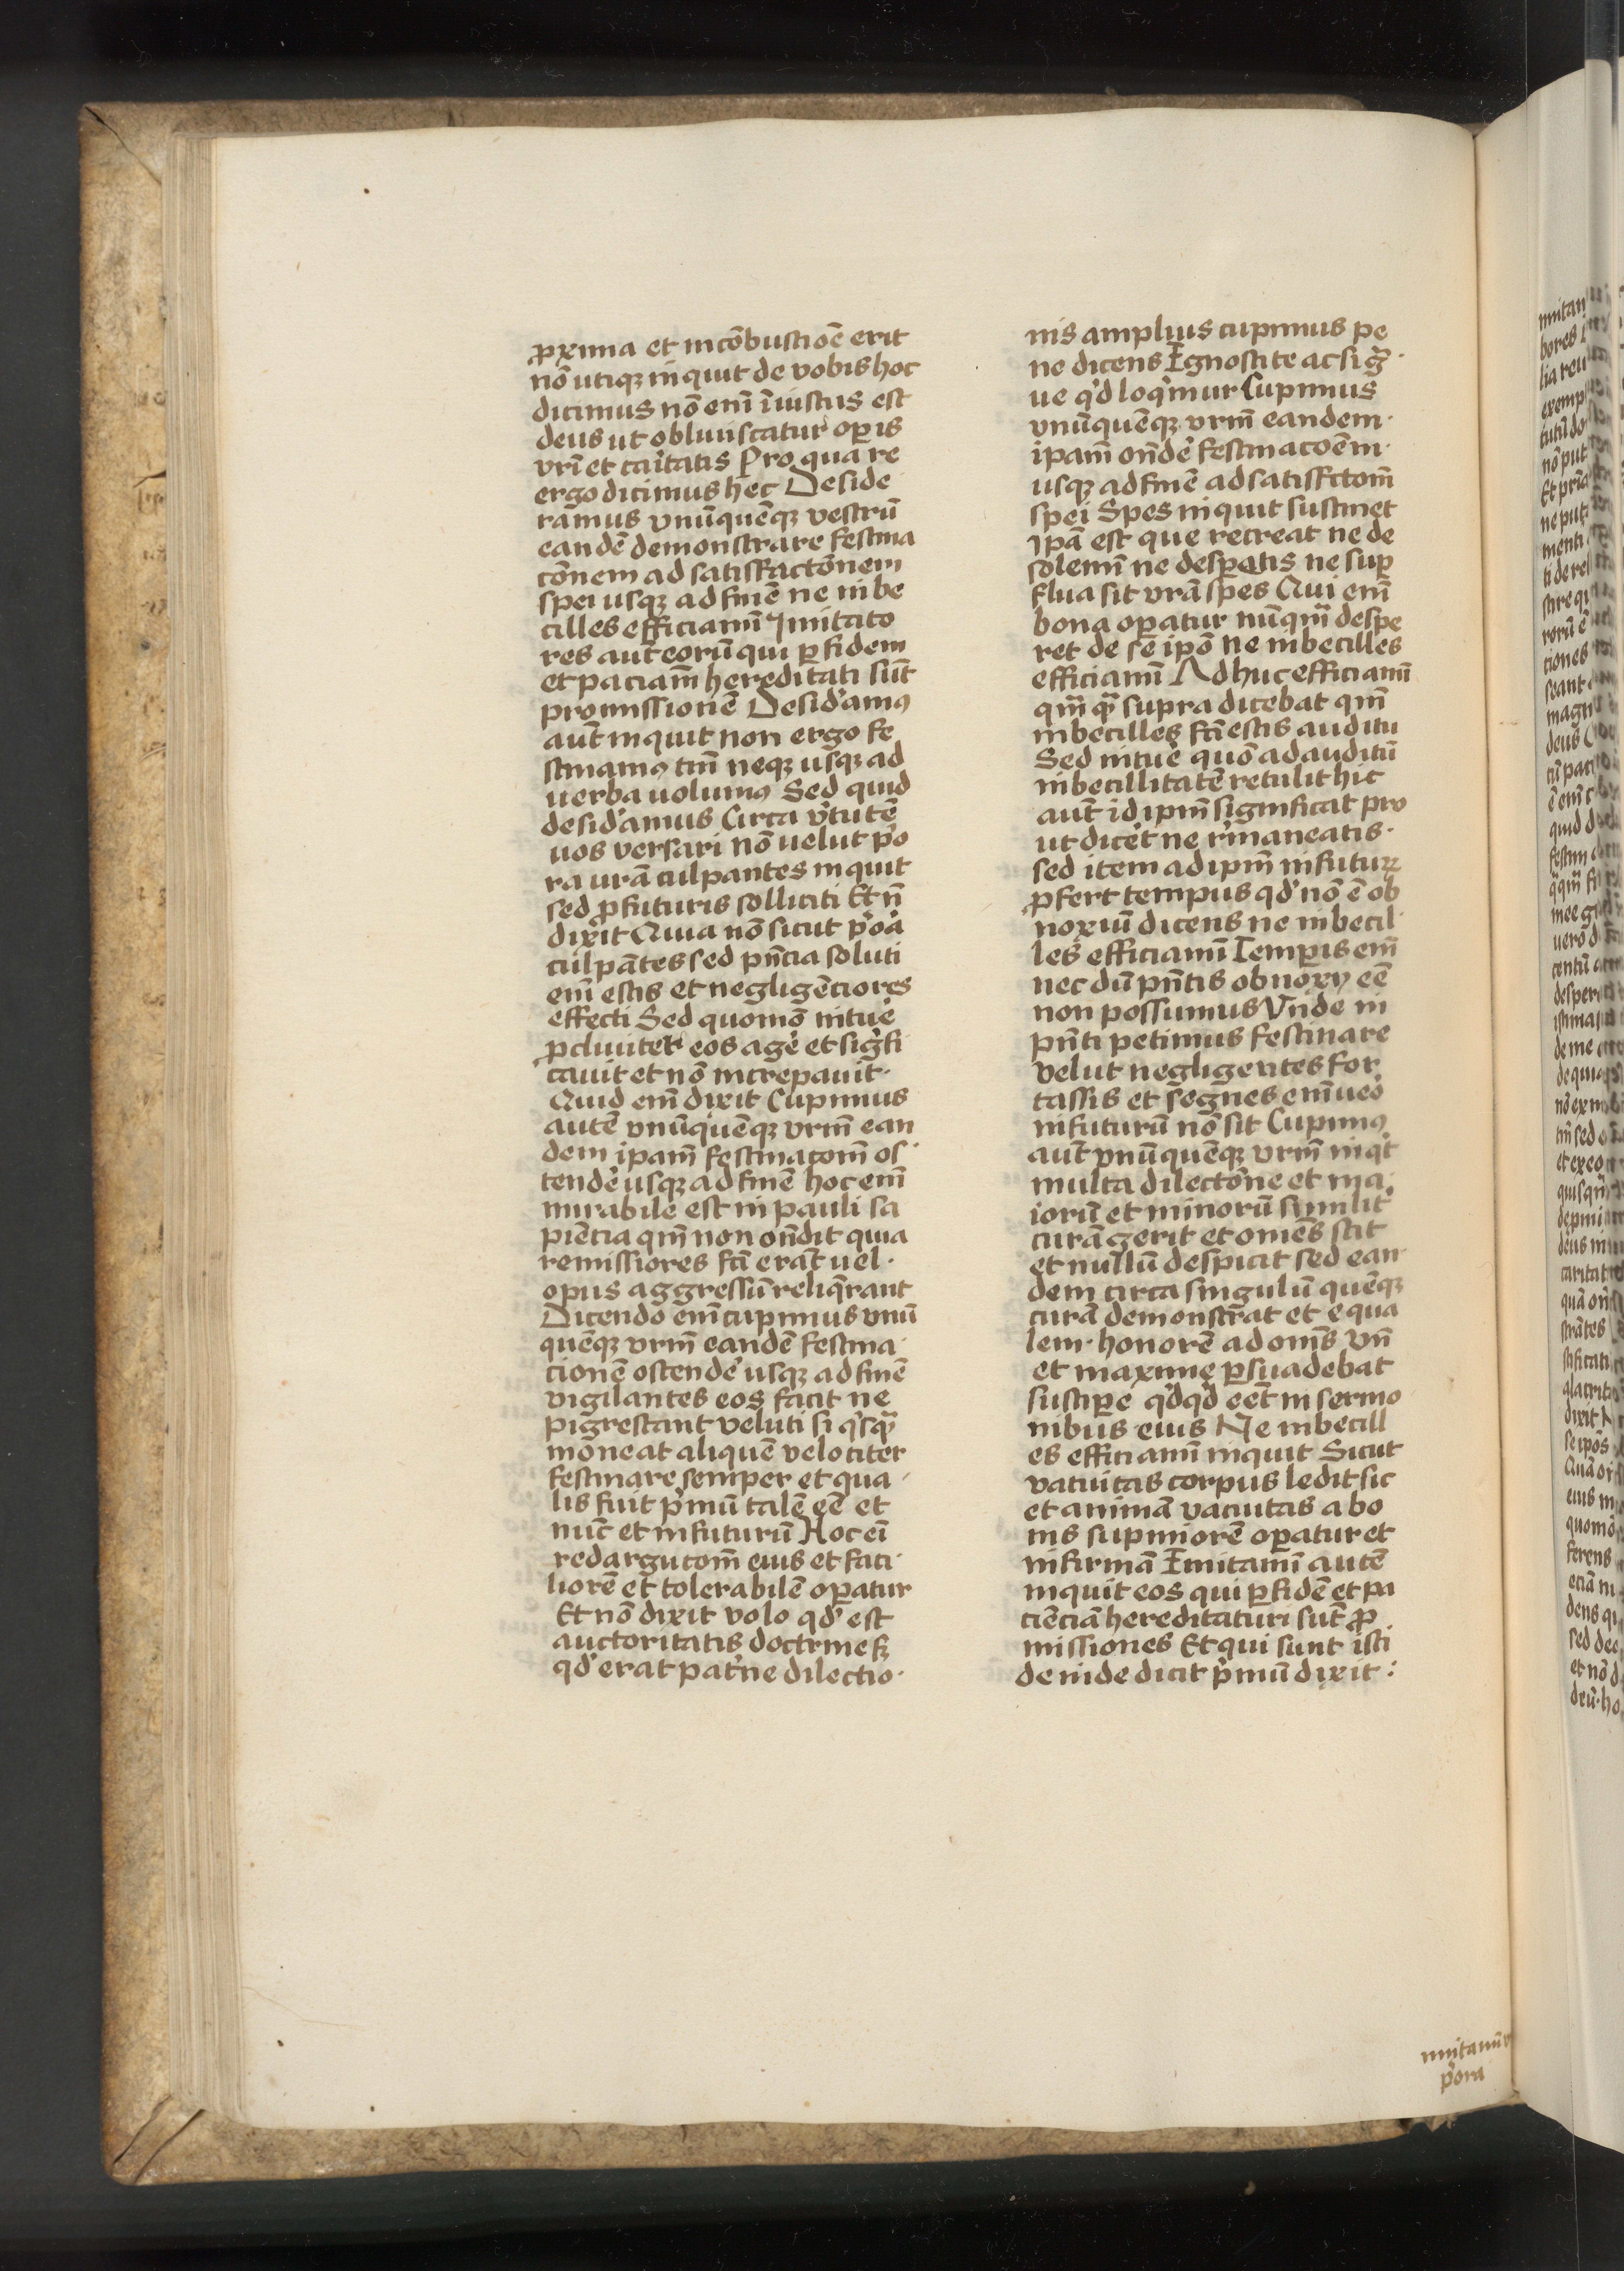 ꝓxima et incōbustiōē erit
nō utiqꝫ inquit de vobis hoc
dicimus nō enī īiustus est
deus ut obliuiscatur oꝑis
vrī et caritatis Pro qua re
ergo dicimus hec Deside
ramus vnūquēqꝫ vestrū
eandē demonstrare festina
cōnem ad satisfactōnem
spei usqꝫ ad finē ne inbe
cilles efficiamī Imitato
res aut̄ eorū qui ꝑ fidem
et paciam̄ hereditati sūt
promissionē Desid'amꝰ
aut̄ inquit non ergo fe
stinamꝰ tm̄ neqꝫ usqꝫ ad
uerba uolumꝰ Sed quid
desid'amus Circa v'tutē
uos versari nō uelut p'o
ra urā culpantes inquit
sed ꝓ futuris solliciti Et n̄
dixit Quia nō sicut p'oa
culpātes sed pn̄cia soluti
enī estis et negligēciores
effecti Sed quomō intue'
ꝓcliuiter eos age' et sig'fi
cauit et nō increpauit·
Quid enī dixit Cupimus
autē vnūquēqꝫ vrm̄ ean
dem ipam̄ festinacom̄ os
tende' usqꝫ ad finē hoc enī
mirabile est in pauli sa
piēcia qm̄ non on̄dit quia
remissiores fc̄i erāt uel·
opus aggressū reliq̄rant
Dicendo enī cupimus vnū
quēqꝫ vrm̄ eandē festina
cionē ostende' usqꝫ ad finē
vigilantes eos facit ne
pigrescant veluti si q'sq̄
moneat aliquē velociter
festinare semper et qua
lis fuit p'mū talē eē et
nūc et in futurū Hoc eī
redargucom̄ eius et faci
liorē et tolerabilē oꝑatur
Et nō dixit volo qd' est
auctoritatis doctrineqꝫ
qd' erat pat'ne dilectio·
nis amplius cupimus pe
ne dicens Ignoscite ac si g̃·
ue q'd loq'mur Cupimus
vnūquēqꝫ vrm̄ eandem·
ipam̄ on̄de' festinacoēm·
usqꝫ ad finē ad satisfctom̄
spei Spes inquit sustinet
Ipā est que recreat ne de
solemī ne desꝑatis ne suꝑ
flua sit vrā spes Qui enī
bona oꝑatur nūqm̄ despe
ret de se ipō ne inbecilles
efficiamī Adhuc efficiamī
qm̄ q̄ supra dicebat qm̄
inbecilles fc̄i estis auditu
Sed intue' quō ad auditū
inbecillitatē retulit hic
aut̄ id ipm̄ significat pro
ut dicēt ne r'maneatis·
sed item ad ipm̄ in futuꝝ
ꝓfert tempus qd' nō ē ob
noxiū dicens ne inbecil
les efficiamī Temꝑis enī
nec dū pn̄tis obnoxy eē
non possumus Vnde in
pn̄ti petimus festinare
velut negligentes for
tassis et segnes enī ueō
in futurū nō sit Cupimꝰ
aut̄ vnūquēqꝫ vrm̄ inq't
multa dilectōne et ma
iorū et minorū similit'
curā gerit et om̄es scit
et nullū despicit sed ean
dem circa singulū quēqꝫ
curā demonstrat et equa
lem· honorē ad om̄s vn̄
et maxime ꝑsuadebat
suscipe' q'dq'd eēt in sermo
nibus eius Ne inbecill
es efficiamī inquit Sicut
vacuitas corpus ledit sic
et animā vacuitas a bo
nis supiniorē oꝑatur et
infirmā Imitamī autē
inquit eos qui ꝑ fidē et pa
ciēciā hereditaturi sūt ꝓ
missiones Et qui sunt isti
deinde dicit p'mū dixit :
imitamī
p'ora